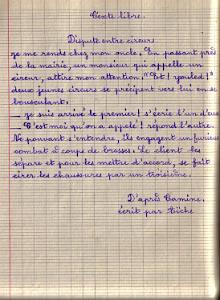 Texte libre.
Dispute entre cireurs
Je me rends chez mon oncle. En passant près
de la mairie, un monsieur qui appelle un
cireur, attire mon attention. "Pst ! yaouled !"
deux jeunes cireurs se précipitent vers lui en se
bousculant.
_ Je suis arrivé le premier ! s'écrie l'un d'eux
_ C'est moi qu'on a appelé ! répond l'autre.
Ne pouvant s'entendre, ils engagent un furieux
combat à coups de brosses. Le client les
sépare et pour les mettre d'accord, se fait
cirer les chaussures par un troisième.
D'après Camine,
écrit par